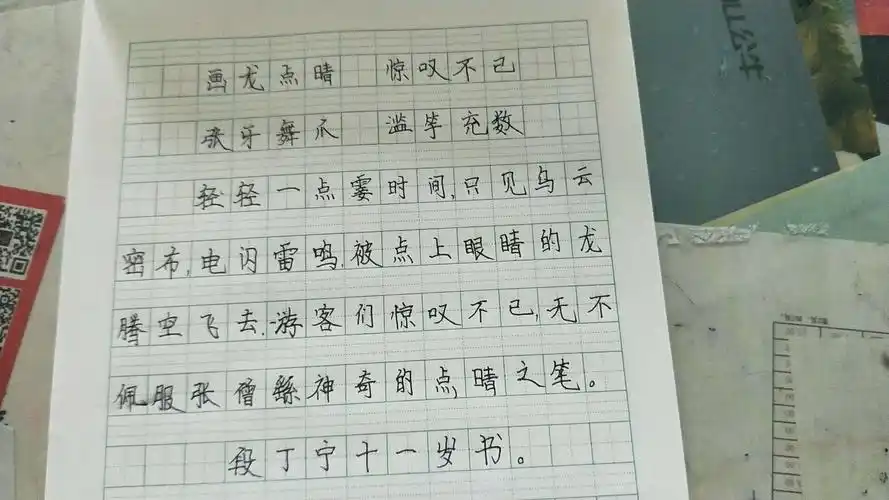 画龙点晴 惊叹不已
张牙舞爪 滥竽充数
轻轻一点霎时间,只见乌云
密布,电闪雷鸣,被点上眼睛的龙
腾空飞去.游客们惊叹不已,无不
佩服张僧繇神奇的点晴之笔。
段丁宁十一岁书。